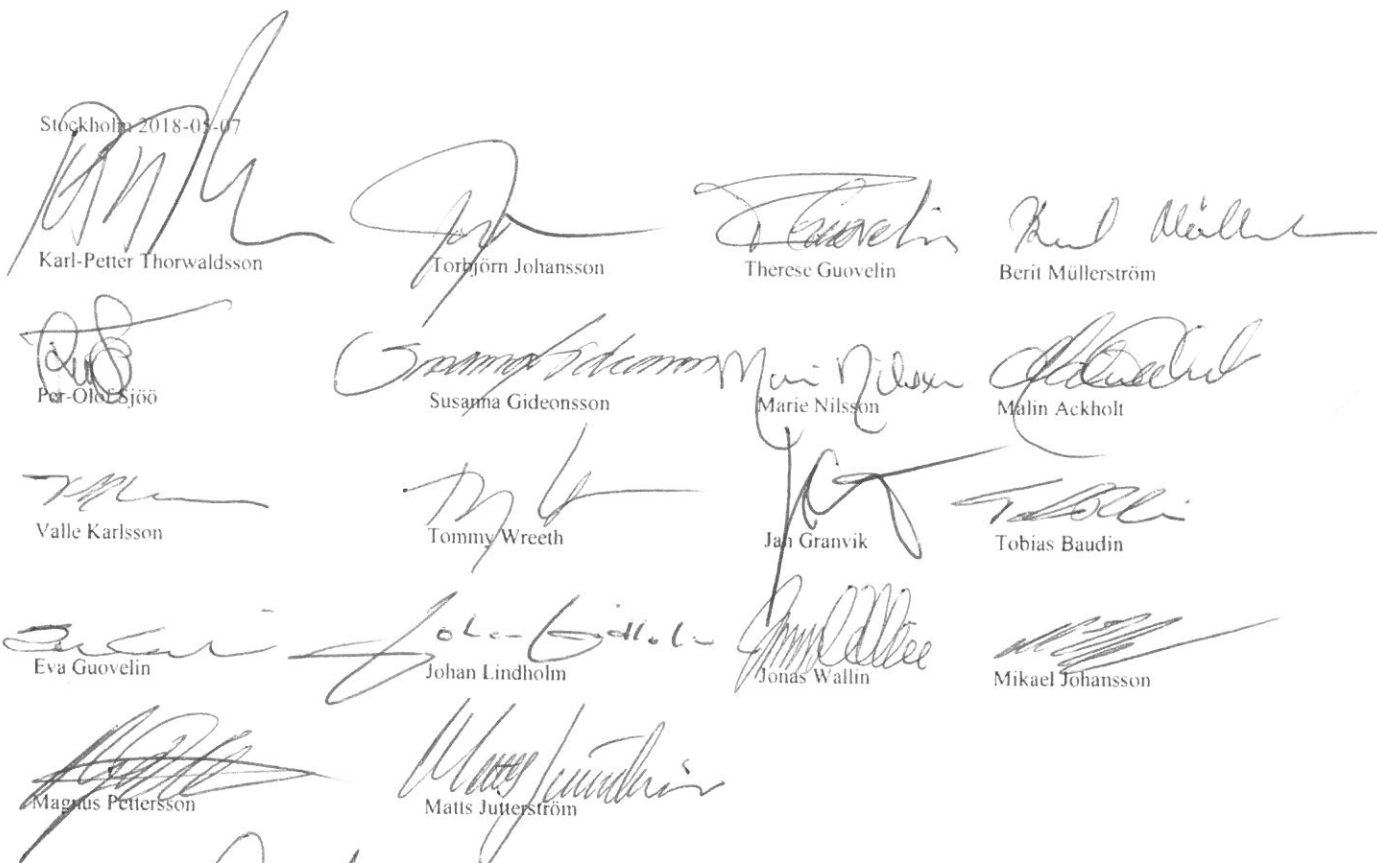 Stockholm 2018-05-07
Karl-Petter Thorwaldsson Torbjörn Johansson Therese Guovelin Berit Müllerström
Per-Olof Sjöö Susanna Gideonsson Marie Nilsson Malin Ackholt
Valle Karlsson Tommy Wreeth Jan Granvik Tobias Baudin
Eva Guovelin Johan Lindholm Jonas Wallin Mikael Johansson
Magnus Pettersson Matts Jutterström